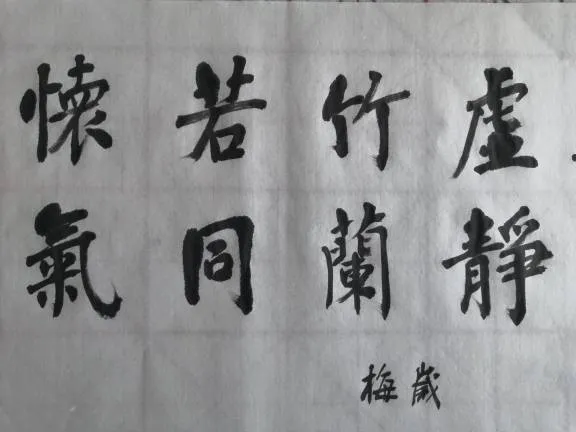 懷若竹虛
氣同蘭靜
梅歲